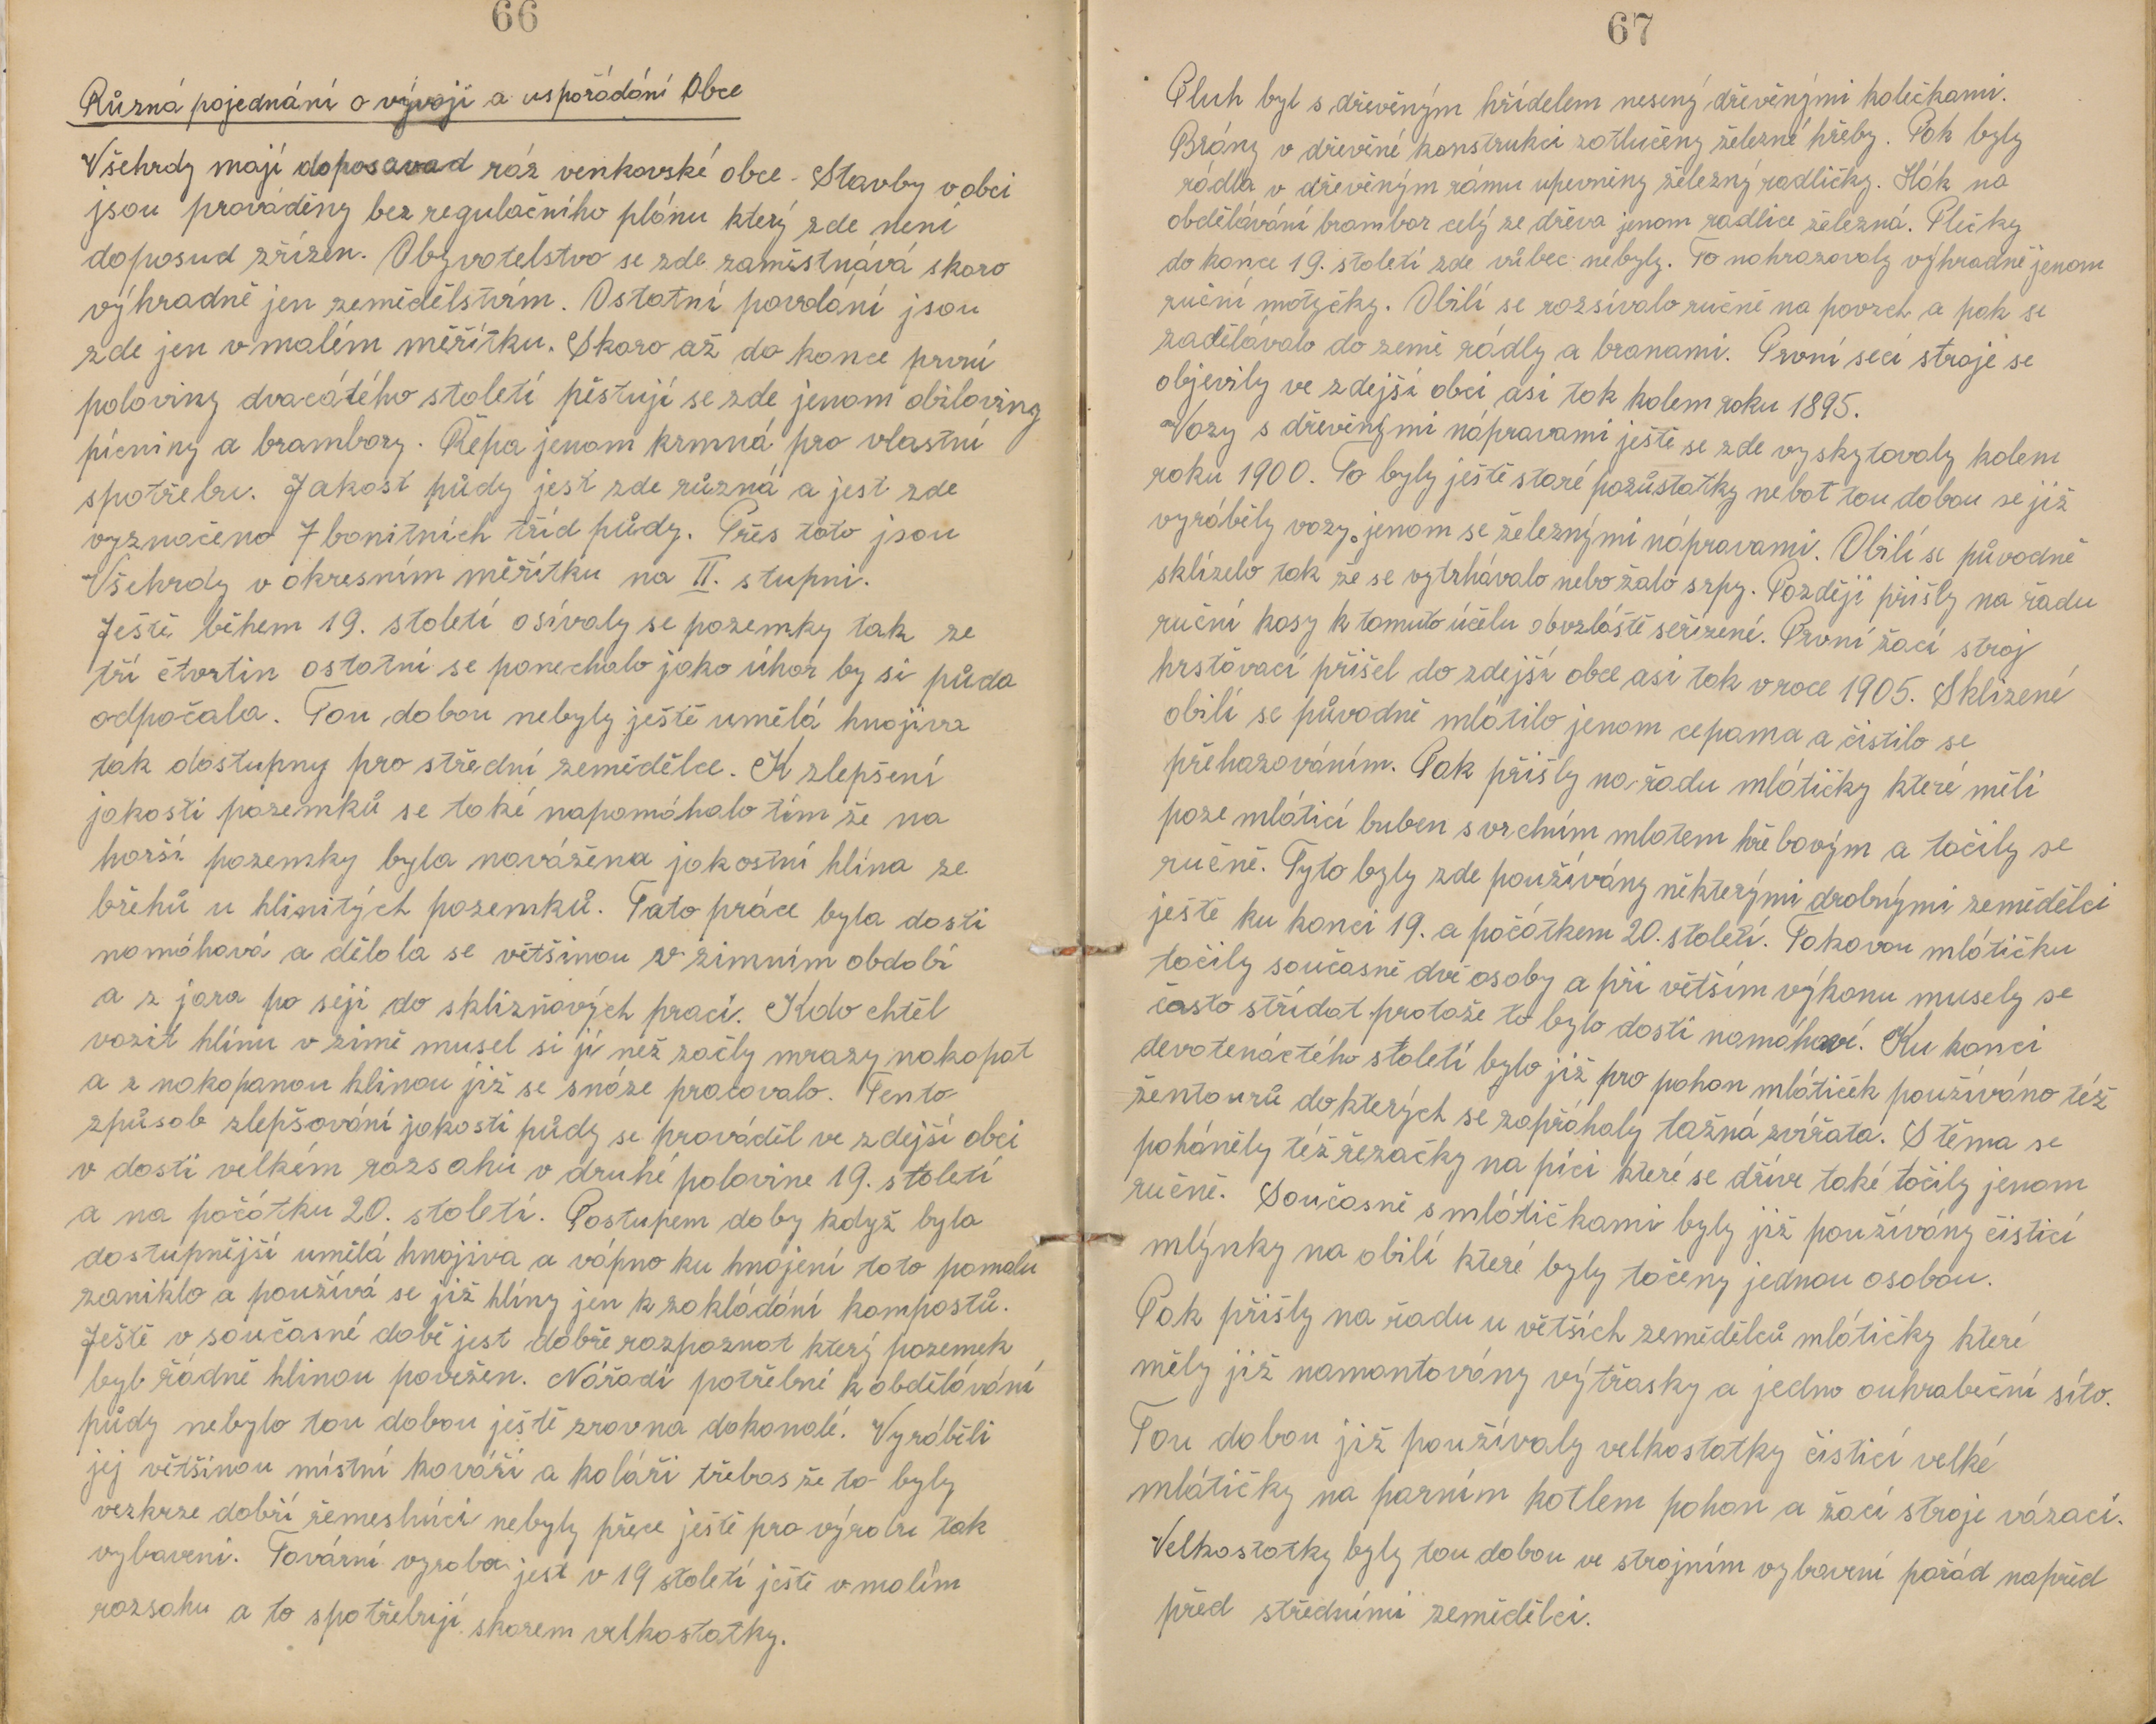 66
Různá pojednání o vývoji a uspořádání Obce
Všehrdy mají doposavad ráz venkovské obce. Stavby v obci
jsou prováděny bez regulačního plánu který zde není
doposud zřízen. Obyvatelstvo se zde zaměstnává skoro
výhradně jen zemědělstvím. Ostatní povolání jsou
zde jen v malém měřítku. Skoro až do konce první
poloviny dvacátého století pěstují se zde jenom obiloviny
pícniny a brambory. Řepa jenom krmná pro vlastní
spotřebu. Jakost půdy jest zde různá a jest zde
vyznačeno 7 bonitních tříd půdy. Přes toto jsou
Všehrdy v okresním měřítku na II. stupni.
Ještě během 19. století osívaly se pozemky tak ze
tří čtvrtin ostatní se ponechalo jako úhor by si půda
odpočala. Tou dobou nebyly ještě umělá hnojiva
tak dostupny pro střední zemědělce. K zlepšení
jakosti pozemků se také napomáhalo tím že na
horší pozemky byla navážena jakostní hlína ze
břehů u hlinitých pozemků. Tato práce byla dosti
namáhavá a dělala se většinou v zimním období
a z jara po seji do sklizňových prací. Kdo chtěl
vozit hlínu v zimě musel si jí než začly mrazy nakopat
a z nakopanou hlinou již se snáze pracovalo. Tento
způsob zlepšování jakosti půdy se prováděl ve zdejší obci
v dosti velkém rozsahu v druhé polovine 19. století
a na počátku 20. století. Postupem doby když byla
dostupnější umělá hnojiva a vápno ku hnojení toto pomalu
zaniklo a používá se již hlíny jen k zakládání kompostů.
Ještě v současné době jest dobře rozpoznat který pozemek
byl řádně hlinou povežen. Nářadí potřebné k obdělávání
půdy nebylo tou dobou ještě zrovna dokonalé. Vyráběli
jej většinou místní kováři a koláři třebas že to byly
vezkrze dobří řemeslníci nebyly přece ještě pro výrobu tak
vybaveni. Tovární vyroba jest v 19 století ještě v malém
rozsahu a to spotřebují skorem velkostatky.
67
Pluh byl s dřevěným hřídelem nesený dřevěnými kolečkami.
Brány v dřevěné konstrukci zatlučeny železné hřeby. Pak byly
rádla v dřevěným rámu upevněny železný radličky. Hák na
obdělávání brambor celý ze dřeva jenom radlice železná. Plečky
do konce 19. století zde vůbec nebyly. To nahrazovaly výhradně jenom
ruční motyčky. Obilí se rozsívalo ručně na povrch a pak se
zadělávalo do země rádly a branami. První secí stroje se
objevily ve zdejší obci asi tak kolem roku 1895.
Vozy s dřevěnými nápravami ještě se zde vyskytovaly kolem
roku 1900. To byly ještě staré pozůstatky nebot tou dobou se již
vyráběly vozy jenom se železnými nápravami. Obilí se původně
sklízelo tak že se vytrhávalo nebo žalo srpy. Později přišly na řadu
ruční kosy k tomuto účelu obvzláště seřízené. První žací stroj
hrstovací přišel do zdejší obce asi tak v roce 1905. Sklizené
obilí se původně mlátilo jenom cepama a čistilo se
přehazováním. Pak přišly na řadu mlátičky které měli
poze mlátící buben s vrchním mlatem hřebovým a točily se
ručně. Tyto byly zde používány některými drobnými zemědělci
ještě ku konci 19. a počátkem 20. století. Takovou mlátičku
točily současně dvě osoby a při větším výkonu musely se
často střídat protože to bylo dosti namáhavé. Ku konci
devatenáctého století bylo již pro pohon mlátiček používáno též
žentourů do kterých se zapřáhaly tažná zvířata. S těma se
poháněly též řezačky na píci které se dříve také točily jenom
ručně. Současně s mlátičkami byly již používány čistící
mlýnky na obilí které byly točeny jednou osobou.
Pak přišly na řadu u větších zemědělců mlátičky které
měly již namontovány výtřasky a jedno ouhrabeční síto.
Tou dobou již používaly velkostatky čistící velké
mlátičky na parním kotlem pohon a žací stroje vázací.
Velkostatky byly tou dobou ve strojním vybavení pořád napřed
před středními zemědělci.